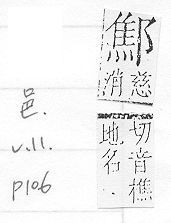 慈
消
切音樵
地名.
邑.
v.11.
p106